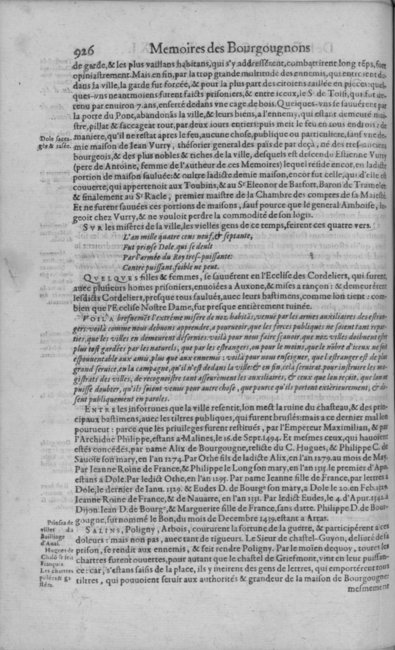 926 Memoires des Bourgougnons
de garde, & les plus vaillans habitans, qui s'y addresserent, combatirent long teps, fort
opiniastrement. Mais en fin, par la trop grande multitude des ennemis, qui entroient de-
dans la ville, la garde fut forcée, & pour la plus part des citoiens taillée en pieces: quel-
ques-vns neantmoins furent faicts prisoniers, & entre iceux, le Sr de Toisi, qui fut de-
tenu par enuiron 7. ans, enserré dedans vne cage de bois. Quelques-vns se sauuerent par
la porte du Pont, abandonás la ville, & leurs biens, a l'ennemy, qui estant demeuré mai-
stre, pillat & saccageat tout, par deux iours entiers: puis meit le feu en tous endrois: de
maniere, qu'il ne restat apres le feu, aucune chose, publique ou particuliere, sauf vne de-
mie maison de Jean Vurry, thesorier general des païs de par deçà, né des tres-anciens
bourgeois, & des plus nobles & riches de la ville, desquels est descendu Estienne Vurry
(pere de Antoine, femme de l'autheur de ces Memoires) lequel reside encor, en ladicte
portion de maison sauluée: & oultre ladicte demie maison, encor fut celle, qui d'elle est
couuerte, qui appertenoit aux Toubins, & au Sr Eleonor de Batfort, Baron de Tramelet
& finalement au Sr Racle, premier maistre de la Chambre des comptes de sa Majesté
Et ne furent sauuées ces portions de maisons, sauf pource que le general Amboise, lo-
geoit chez Vurry, & ne vouloit perdre la commodité de son logis.
Dole sacca-
gée & rasée.
SVR les miseres de la ville, les vielles gens de ce temps, feirent ces quatre vers.
L'an mille quatre cens neuf, & septante,
Fut prinse Dole, qui se deult
Par l'armée du Roy tres-puissante:
Contre puissant, foible ne peut.
QVELQVES filles & femmes, se sauuerent en l'Ecclise des Cordeliers, qui furent,
auec plusieurs homes prisoniers, enuoiées a Auxone, & mises a rançon: & demeurerent
lesdicts Cordeliers, presque tous sauluez, auec leurs bastimens, comme lon tiene: com-
bien que l'Ecclise Nostre Dame, fut presque entierement ruinée.
VOILA briefuemēt l'extreme misere de nos habitās, venue par les armes auxiliaires des estran-
gers: voilà comme nous deuons apprendre, a pourueoir, que les forces publiques ne soient tant repar-
ties, que les villes en demeurent desfornies: voilà pour nous faire scauoir, que nos villes doibuent estre
plus tost gardées par les naturels, que par les estrangers, ou pour le moins, que le nōbre d'iceux ne soit
espouuentable aux amis, plus que aux ennemis: voilà pour nous enseigner, que l'estranger est de plus
grand seruice, en la campagne, qu'il n'est dedans la ville: & en fin, cela seruirat pour instruire les ma-
gistrats des villes, de recognoistre tant asseurement les auxiliaires, & ceux que lon reçoit, que lon ne
puisse doubter, qu'ils soient venus pour autre chose, que pource qu'ils portent exterieurement, & di-
sent publiquement en paroles.
ENTRE les infortunes que la ville resentit, lon mect la ruine du chasteau, & des prin-
cipaux bastimens, auec les tiltres publiques, qui furent bruslés: mais a ce dernier mal lon
pourueut: parce que les priuileges furent restitués, par l'Empereur Maximilian, & par
l'Archiduc Philippe, estans a Malines, le 16. de Sept. 1494. Et mesmes ceux, qui hauoient
estés concedés, par dame Alix de Bourgougne, relicte du C. Hugues, & Philippe C. de
Sauoie son mary, en l'an 1274. Par Othe fils de ladicte Alix, en l'an 1279. au mois de May.
Par Jeanne Roine de France, & Philippe le Long son mary, en l'an 1315. le premier d'Apr.
estans a Dole. Par ledict Othe, en l'an 1295. Par dame Jeanne fille de France, par lettres a
Dole, le dernier de Ianu. 1329. & Eudes D. de Bourg. son mary, a Dole le 20. en Feb. 1332.
Jeanne Roine de France, & de Nauarre, en l'an 1321. Par ledict Eudes, le 4. d'Apur. 1342. a
Dijon. Jean D. de Bourg. & Marguerite fille de France, sans datte. Philippe D. de Bour-
gougne, surnommé le Bon, du mois de Decembre 1439. estant a Arras.
SALINS, Poligny, Arbois, coururent la fortune de la guerre, & participerent a ces
doleurs: mais non pas, auec tant de rigueurs. Le Sieur de chastel-Guyon, deliuré de la
prison, se rendit aux ennemis, & feit rendre Poligny. Par le moïen dequoy, toutes les
chartres furent ouuertes, pour autant que le chastel de Griefmont, vint en leur puissan-
ce: car, s'estans saisis de la place, ils y mirent des gens de lettres, qui emporterent tous
tiltres, qui pouuoient seruir aux authorités & grandeur de la maison de Bourgougne:
mesmement
Prinses de
villes du
Bailliage
d'Aual.
Hugues de
Chalō se feit
François.
Les chartres